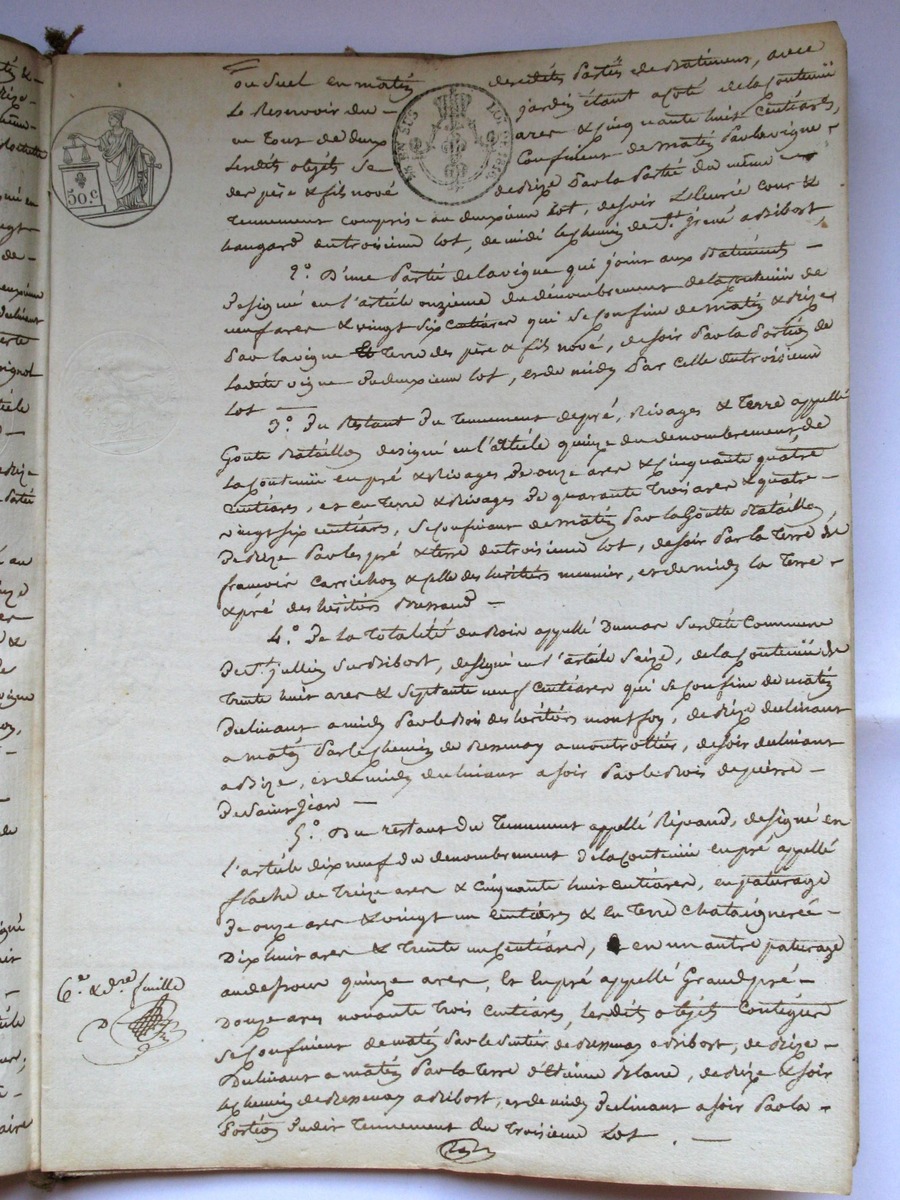 ou Suel en matin desdites Parties de Batiment, avec
Le Reservoir du jardin étant a coté de la Contenüe
un Tour de Deux ares & cinquante huit centiares,
Lesdits objets Se Confinent de matin Par la vigne
des père & fils nové de Bize Par la Partie du même
Tennement compris au deuxième Lot, de soir cour &
hangard du troisième Lot, de midi le chemin de St. jrené a Ribost
2º. D'une Partie de la vigne qui joint aux Batiments
Designé en l'article onzième du dénombrement de la Contenüe de
neuf ares & vingt Six Centiares qui Se Confine de matin & Bize
Par la vigne Et Terre des père & fils nové, de soir Par la Portion de
Ladite vigne du deuxieme Lot, et de midy Par Celle du troisieme
Lot
3º. Du Restant Du Tennement de pré, Rivages & Terre appellé
Goute Bataillon designé en l'article quinze du denombrement, de
La Contenüe en pré & Rivages De onze ares & Cinquante quatre
Centiares, et en Terre & Rivages De quarante Trois ares & quatre
vingt Six centiares, Se Confinant de matin Par La Goutte Bataillon,
De Bize Par les pré & terre du troisieme Lot, de soir Par la Terre de
françois Carrichon & Celle des heritiers meunier, et de midy la Terre
& pré des heritiers Bressand
4º. De la Totalité du Bois appellé Dumas Sur dite Commune
De St. jullien Sur Bibost, designé en l'article Seize, de la Contenüe de
Trente huit ares & Septante neuf Centiares qui Se Confine de matin
Declinant a midy Par le Bois des heritiers montfoy, de Bize declinant
a matin Par le chemin de Bessenay a montrottier, de soir declinant
a Bize, et de midy declinant a soir Par le Bois de pierre
De Saint Jean
5º. Du restant du Tennement appellé Ripaud, designé en
l'article dix neuf du denombrement De la Contenüe en pré appellé
flache de Treize ares & Cinquante huit centiares, en paturage
De onze ares & vingt un Centiares & En Terre Chataigneréé
Dix huit ares & Trente un Centiares, en un autre paturage
au dessous quinze ares, Et En pré appellé Grand pré
Douze ares nonante Trois centiares, Lesdits objets Contigus
Se Confinent de matin Par le Sentier de Bessenay a Bibost, de Bize
Declinant a matin Par la Terre d'Etienne Blanc, de Bize & soir
Le chemin de Bessenay a Bibost, et de midy declinant a soir Par la
Portion Dudit Tennement du Troisieme Lot.
50 c
6e. & dre. feuille